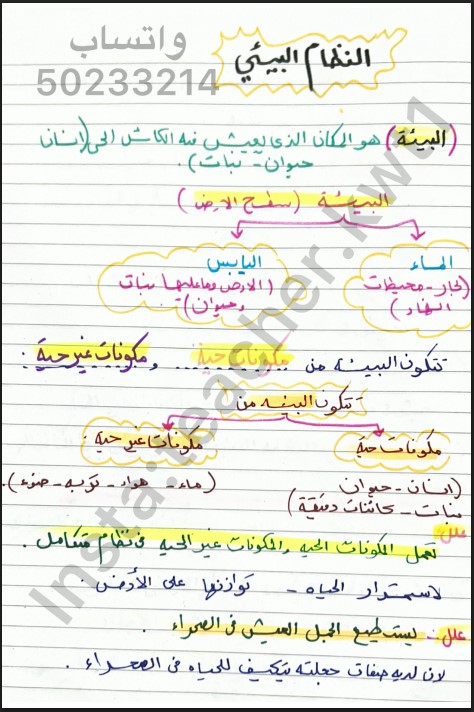 واتساب
50233214
النظام البيئي
(البيئة) هو المكان الذى يعيش فيه الكائن الحى (انسان
حيوان - نبات).
البيئة (سطح الارض)
الماء
(بحار - محيطات
انهار)
اليابس
(الارض وماعليها نبات
وحيوان)
تتكون البيئه من مكونات حية ومكونات غير حية.
تتكون البيئه من
مكونات حية
مكونات غير حية
(انسان - حيوان
نبات - كائنات دقيقة)
(ماء - هواء - تربه - ضوء).
علل:
تعمل المكونات الحيه والمكونات غير الحيه فى نظام متكامل.
لاستمرار الحياه - توازنها على الأرض.
علل: يستطيع الجمل العيش فى الصحراء
لان لديه صفات جعلته يتكيف للحياه فى الصحراء.
Insta:teacher.kwt1